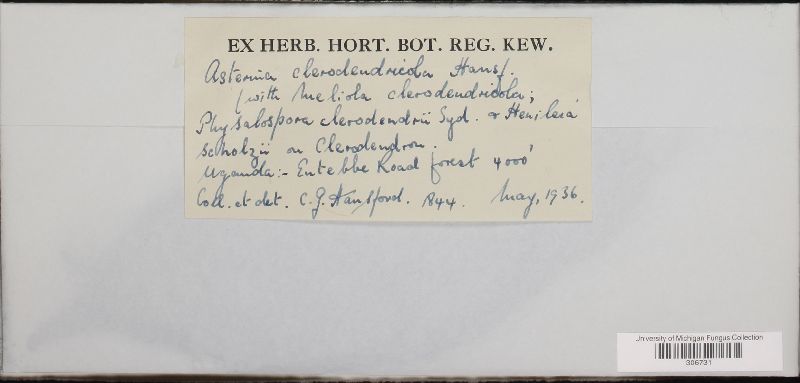 EX HERB. HORT. BOT. REG. KEW.
Asterina clerodendricola Hansf.
(with Meliola clerodendricola;
Physalospora clerodendrii Syd. & Hemileia
scholzii on Clerodendron.
Uganda:- Entebbe Road forest 4000'
Coll. et det. C.G. Hansford. 1844. May, 1936.
University of Michigan Fungus Collection
306731